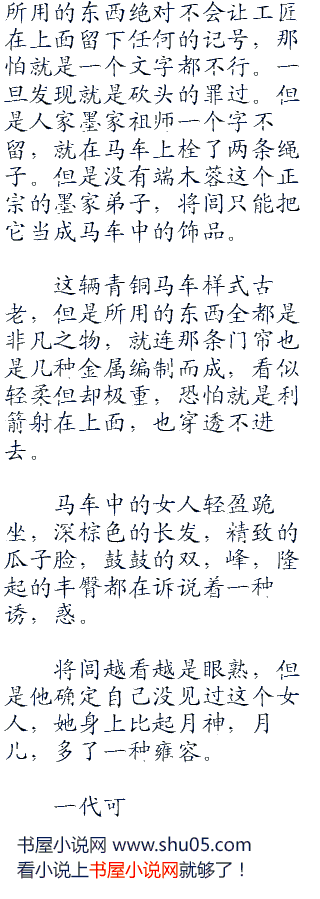 所用的东西绝对不会让工匠
在上面留下任何的记号，那
怕就是一个文字都不行。一
旦发现就是砍头的罪过。但
是人家墨家祖师一个字不
留，就在马车上栓了两条绳
子。但是没有端木蓉这个正
宗的墨家弟子，将闾只能把
它当成马车中的饰品。
这辆青铜马车样式古
老，但是所用的东西全都是
非凡之物，就连那条门帘也
是几种金属编制而成，看似
轻柔但却极重，恐怕就是利
箭射在上面，也穿透不进
去。
马车中的女人轻盈跪
坐，深棕色的长发，精致的
瓜子脸，鼓鼓的双，峰，隆
起的丰臀都在诉说着一种
诱，惑。
将闾越看越是眼熟，但
是他确定自己没见过这个女
人，她身上比起月神，月
儿，多了一种雍容。
一代可
书屋小说网 www.shu05.com
看小说上书屋小说网就够了！